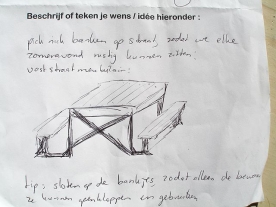 Beschrijf of teken je wens / idée hieronder :
pick nick banken op straat, zodat we elke
zomeravond rustig kunnen zitten.
vast straat meubilair.
tip: sloten op de bankjes zodat alleen de bewoners
ze kunnen openklappen en gebruiken